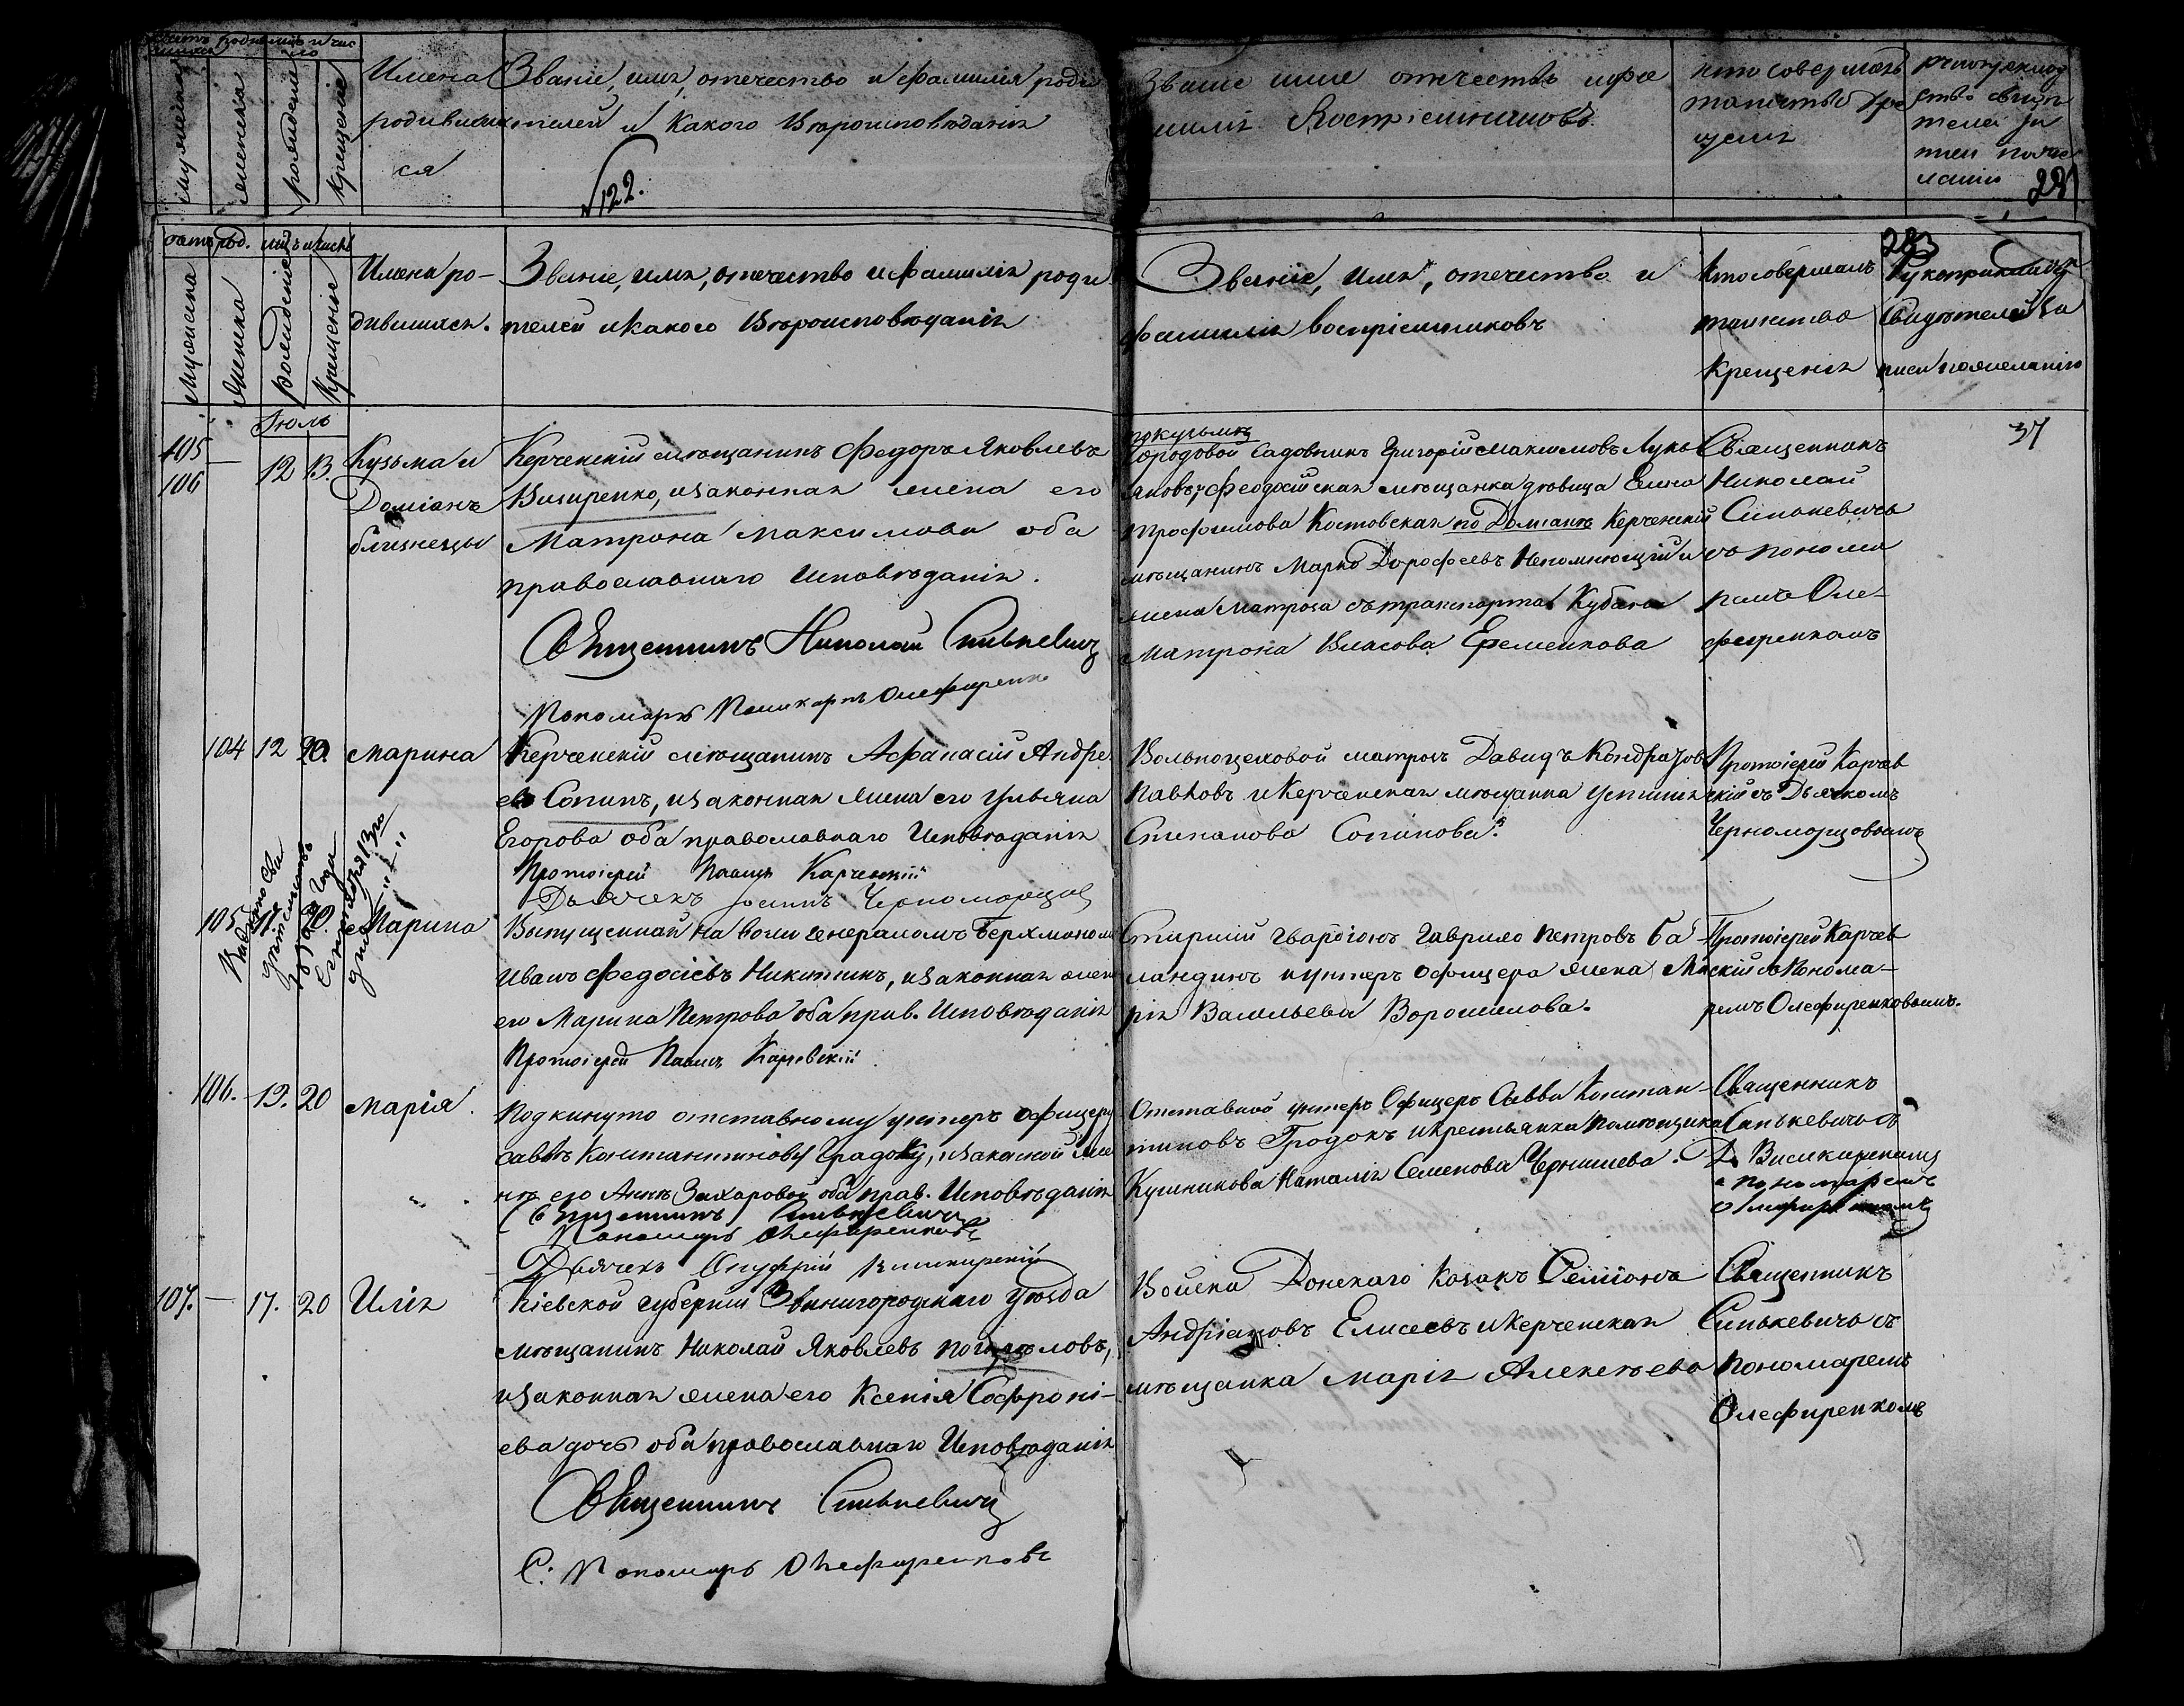 Имена Званіе, имя, отечество и фамилія роди
родивших телей и какого Вѣроисповѣданія
ся
122.
Званіе имя отечество и фа
миліи Воспріемниковъ
кто совершалъ
таинство кре
щенія
Мужеска
Женска
рожденія
Крещенія
Имена ро-
дившихся.
Званіе, имя, отечество и фамилія роди
телей и какого Вѣроисповѣданія
Званіе, имя, отечество и
фамилія воспріемниковъ
Кто совершалъ
таинство
Крещенія
Рукоприкладство
Свидѣтелей За
писи по желанію
Іюль
105
106
—
12
13.
Кузьма и
Доміанъ
близнецы
Керченскій мѣщанинъ Федоръ Яковлевъ
и законная жена его
Матрона Максимова оба
православнаго Исповѣданія.
Священникъ Николай Синькевичъ
Пономарь Поликарпъ Олефиренко
по Кузьмѣ
Городовой Садовникъ Григорій Максимовъ Лукь
яновъ, и Феодосійская мѣщанка дѣвица Елена
Трофимова Костовская по Доміанѣ Керченскій
мѣщанинъ Марко Дорофеевъ Непомнющій и
жена Матроса съ транспорта Кубань
Матрона Власова Еременкова
Священникъ
Николай
Синькевичъ
съ понома
ремъ Оле-
фиренкомъ
37
104
12
20.
Марина
Керченскій мѣщанинъ Афанасій Андре
евъ Сопинъ, и законная жена его Ульяна
Егорова оба православнаго Исповѣданія
Протоіерей Павелъ Карчевскій
Дьячекъ Іоаннъ Черноморцов
Вольноцеховой матросъ Давидъ Кондратовъ
Павловъ и Керченская мѣщанка Устинія
Степанова Сопинова.
Протоіерей Карчев
скій съ Дьячкомъ
Черноморцовымъ
105
Марина
Выпущенный на волю генераломъ Берхманомъ
Иванъ Федосіевъ Никитинъ, и законная жена
его Марина Петрова оба прав. Исповѣданія
Протоіерей Павелъ Карчевскій
Гаврило Петровъ Ба
ландинъ и унтеръ офицера жена Ма
рія Васильева Ворошилова.
Протоіерей Карчев
скій съ Понома-
ремъ Олефиренковымъ.
106.
19.
20
Марія.
Подкинуто отставному унтеръ офицеру
Саввѣ Константинову Градоку, и законной же
нѣ его Аннѣ Захаровой оба прав. Исповѣданія
Священникъ Синькевичъ
Пономарь Олефиренковъ
Дьячекъ Онуфрій
Отставной унтеръ Офицеръ Савва Констан-
тиновъ Градокъ и крестьянка помѣщика
Кушникова Наталія Семенова Чернышева.
Священникъ
Синькевичъ съ
Д.
и пономаремъ
107.
—
17.
20
Илія
Кіевской губерніи Звенигородскаго Уѣзда
мѣщанинъ Николай Яковлевъ
и законная жена его Ксенія Софроні-
ева дочь оба православнаго Исповѣданія
Священникъ Синькевичъ
С. Пономарь Олефиренковъ
Войска Донскаго Козакъ Семіонъ
Андріановъ Елисеевъ и Керченская
мѣщанка Марія Алексѣева
Священникъ
Синькевичъ съ
пономаремъ
Олефиренкомъ